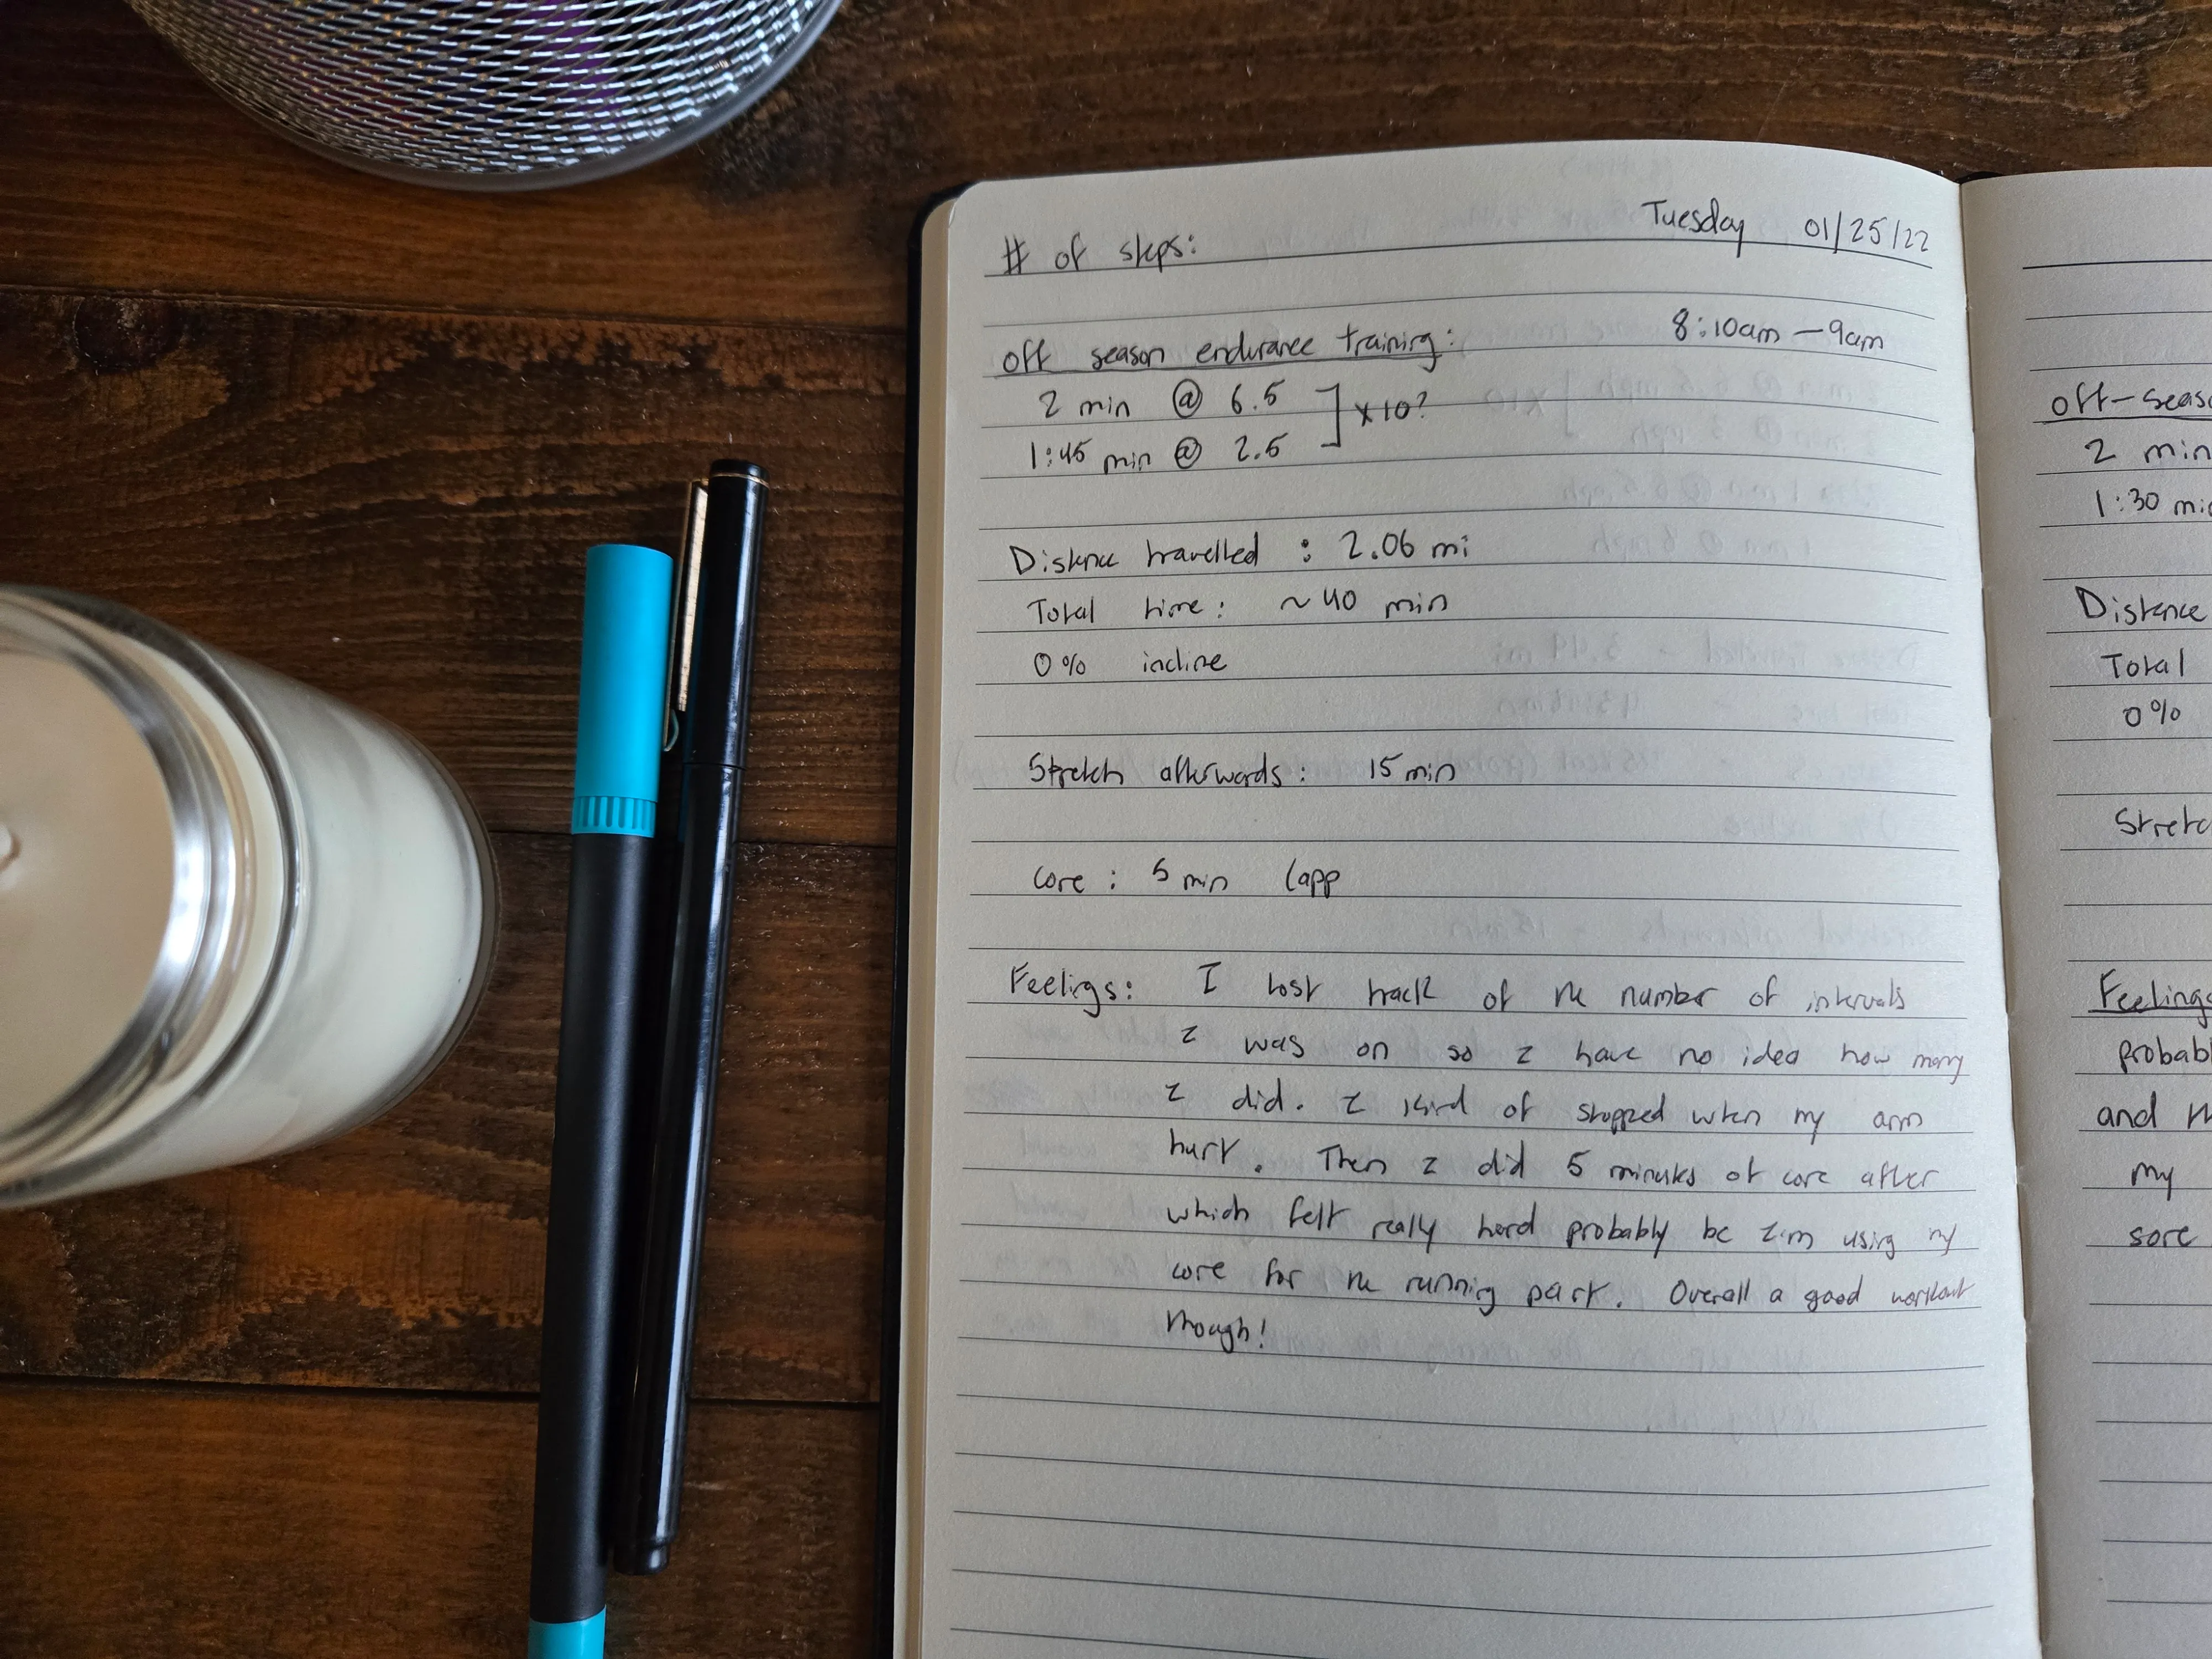 Tuesday 01/25/22
# of steps:
off season endurance training: 8:10am - 9am
2 min @ 6.5 ] x10?
1:45 min @ 2.5
Distance travelled : 2.06 mi
Total time: ~40 min
0% incline
Stretch afterwards: 15 min
core: 5 min (app
Feelings: I lost track of the number of intervals
I was on so I have no idea how many
I did. I kind of stopped when my arm
hurt. Then I did 5 minutes of core after
which felt really hard probably bc I'm using my
core for the running part. Overall a good workout
though!
off-seas
2 min
1:30 min
Distance
Total
0%
Stretc
Feelings
probabl
and th
my
sore